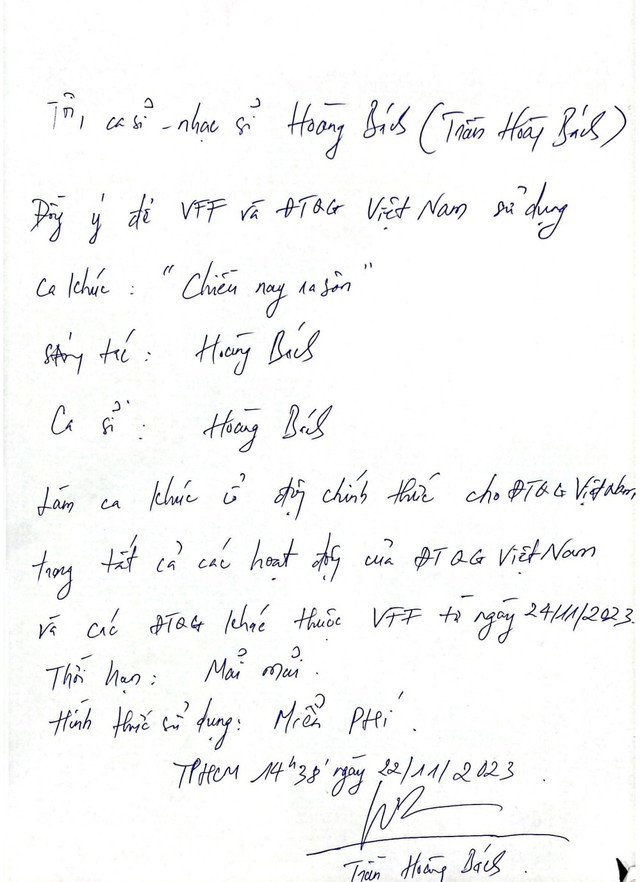 Tôi, ca sỉ - nhạc sỉ Hoàng Bách (Trần Hoàng Bách)
Đồng ý để VFF và ĐTQG Việt Nam sử dụng
Ca khúc: "Chiều nay ra sân"
Sáng tác: Hoàng Bách
Ca sỉ: Hoàng Bách
Làm ca khúc cổ động chính thức cho ĐTQG Việt Nam
trong tất cả các hoạt động của ĐTQG Việt Nam
và các ĐTQG khác thuộc VFF từ ngày 24/11/2023.
Thời hạn: Mải mải.
Hình thức sử dụng: Miển PHí.
TPHCM 14h38' ngày 22/11/2023.
Trần Hoàng Bách.